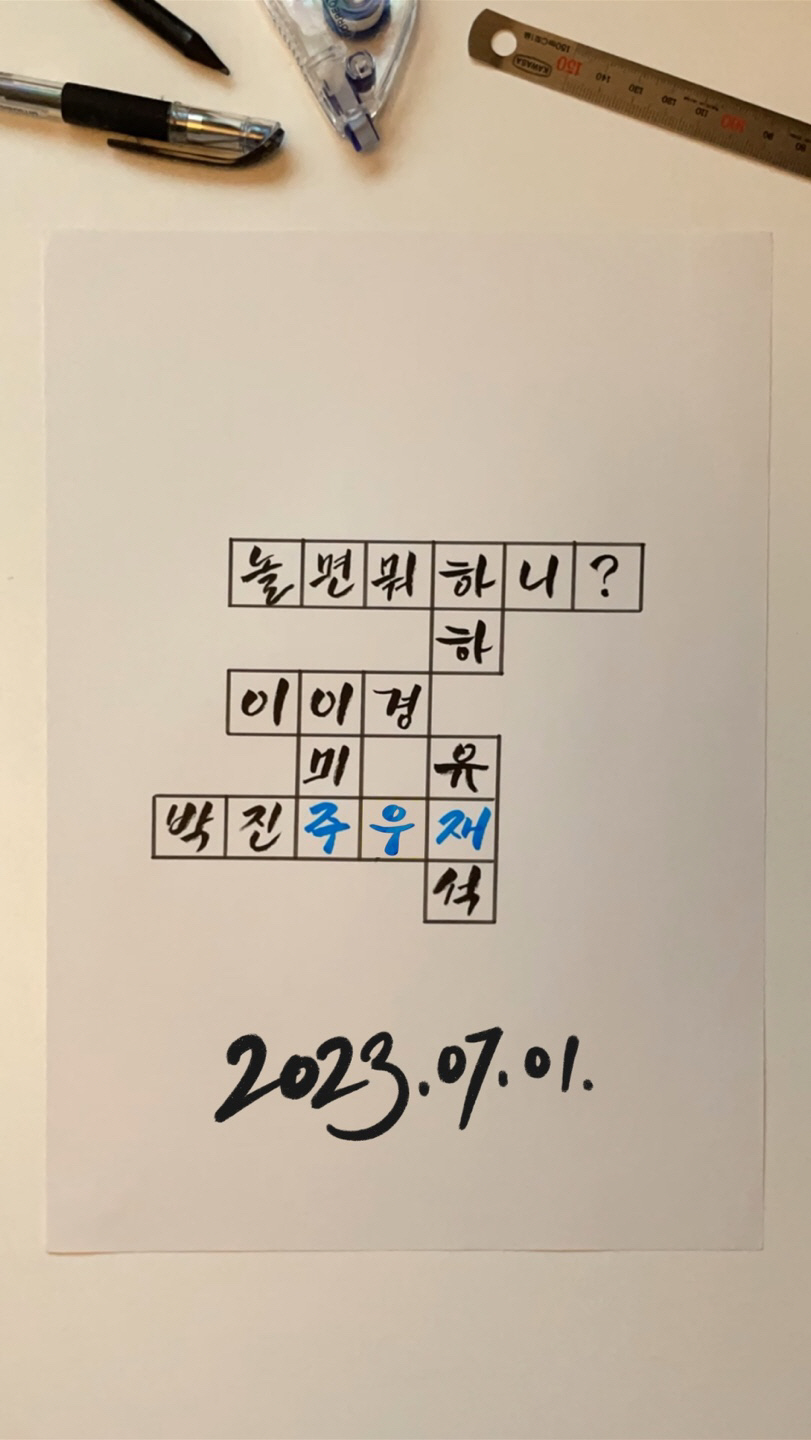 놀면뭐하니?
하
이이경
미 유
박진주우재
석
2023.07.01.
KAWASA
150
140
130
100
90